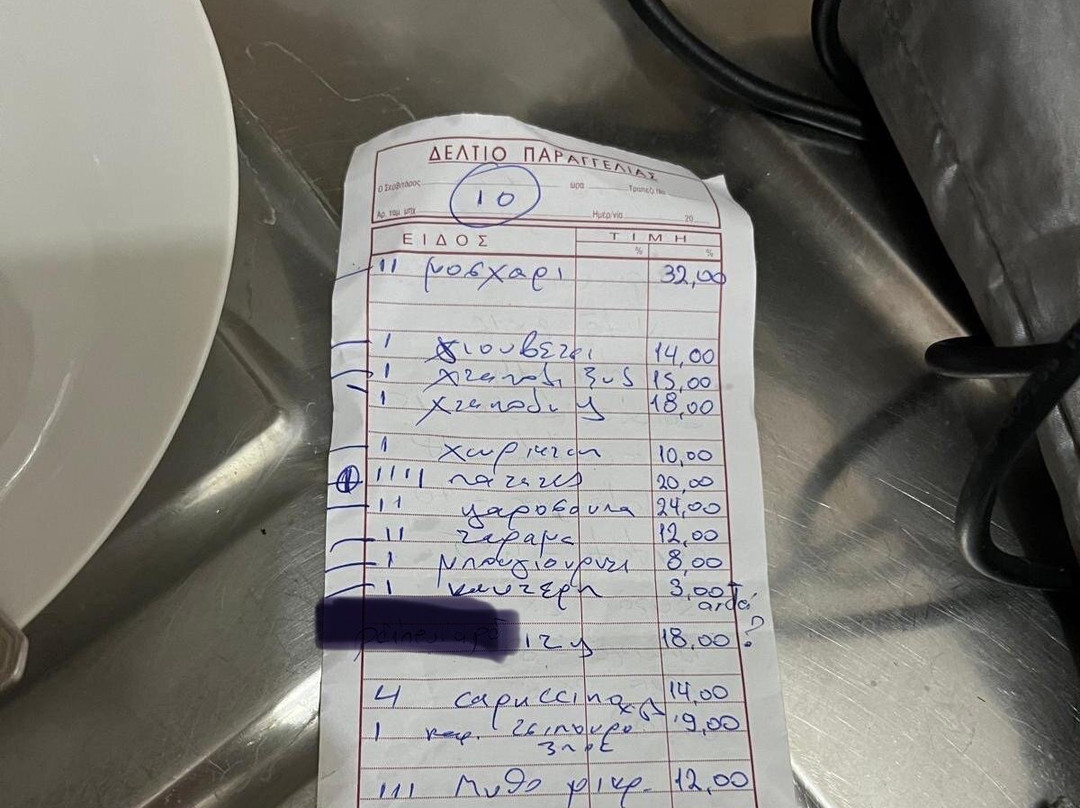 ΔΕΛΤΙΟ ΠΑΡΑΓΓΕΛΙΑΣ
Ο Σερβιτόρος ώρα Τραπέζι Νο
10
Αρ. ταμ. μηχ. Ημερ/νία 20
ΕΙΔΟΣ ΤΙΜΗ
% %
11 μοσχαρι 32,00
1 γιουβετσι 14,00
1 χταποδι ξυδ 15,00
1 χταποδι 18,00
1 χωριατικη 10,00
1111 πατατες 20,00
11 24,00
11 ταραμα 12,00
1 μπουγιουρντι 8,00
1 καυτερη 3,00
18,00 ?
4 capuccino 14,00
1 καρ. τσιπουρο 9,00
111 Μυθο μικρ. 12,00